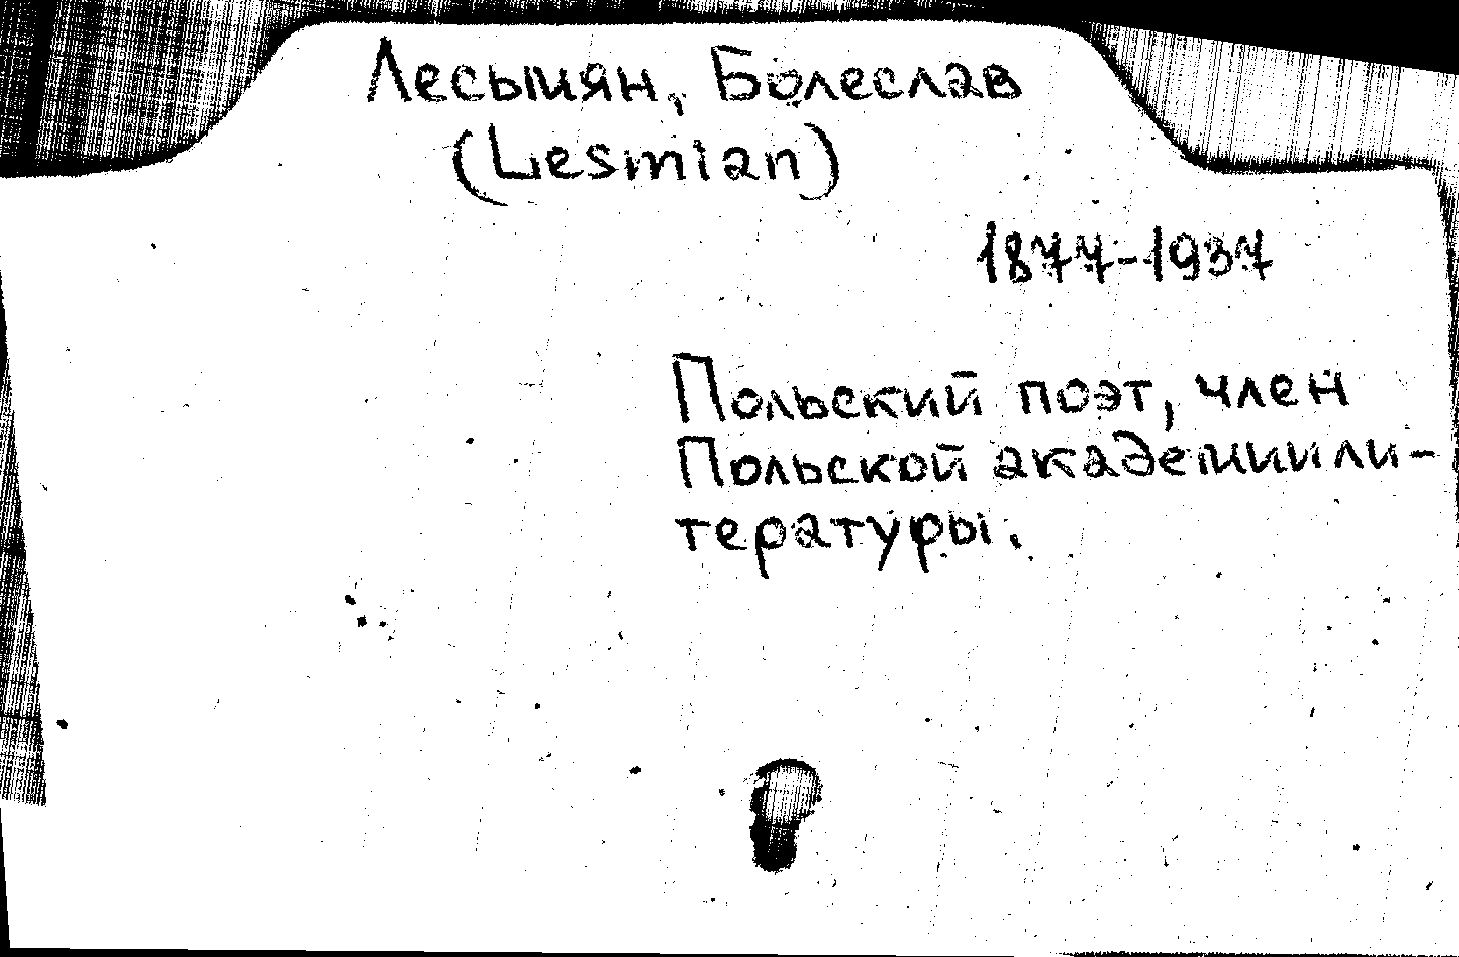 Лесьмян, Болеслав
(Lesmian)
1877-1937
Польский поэт, член
Польской академии ли-
тературы.